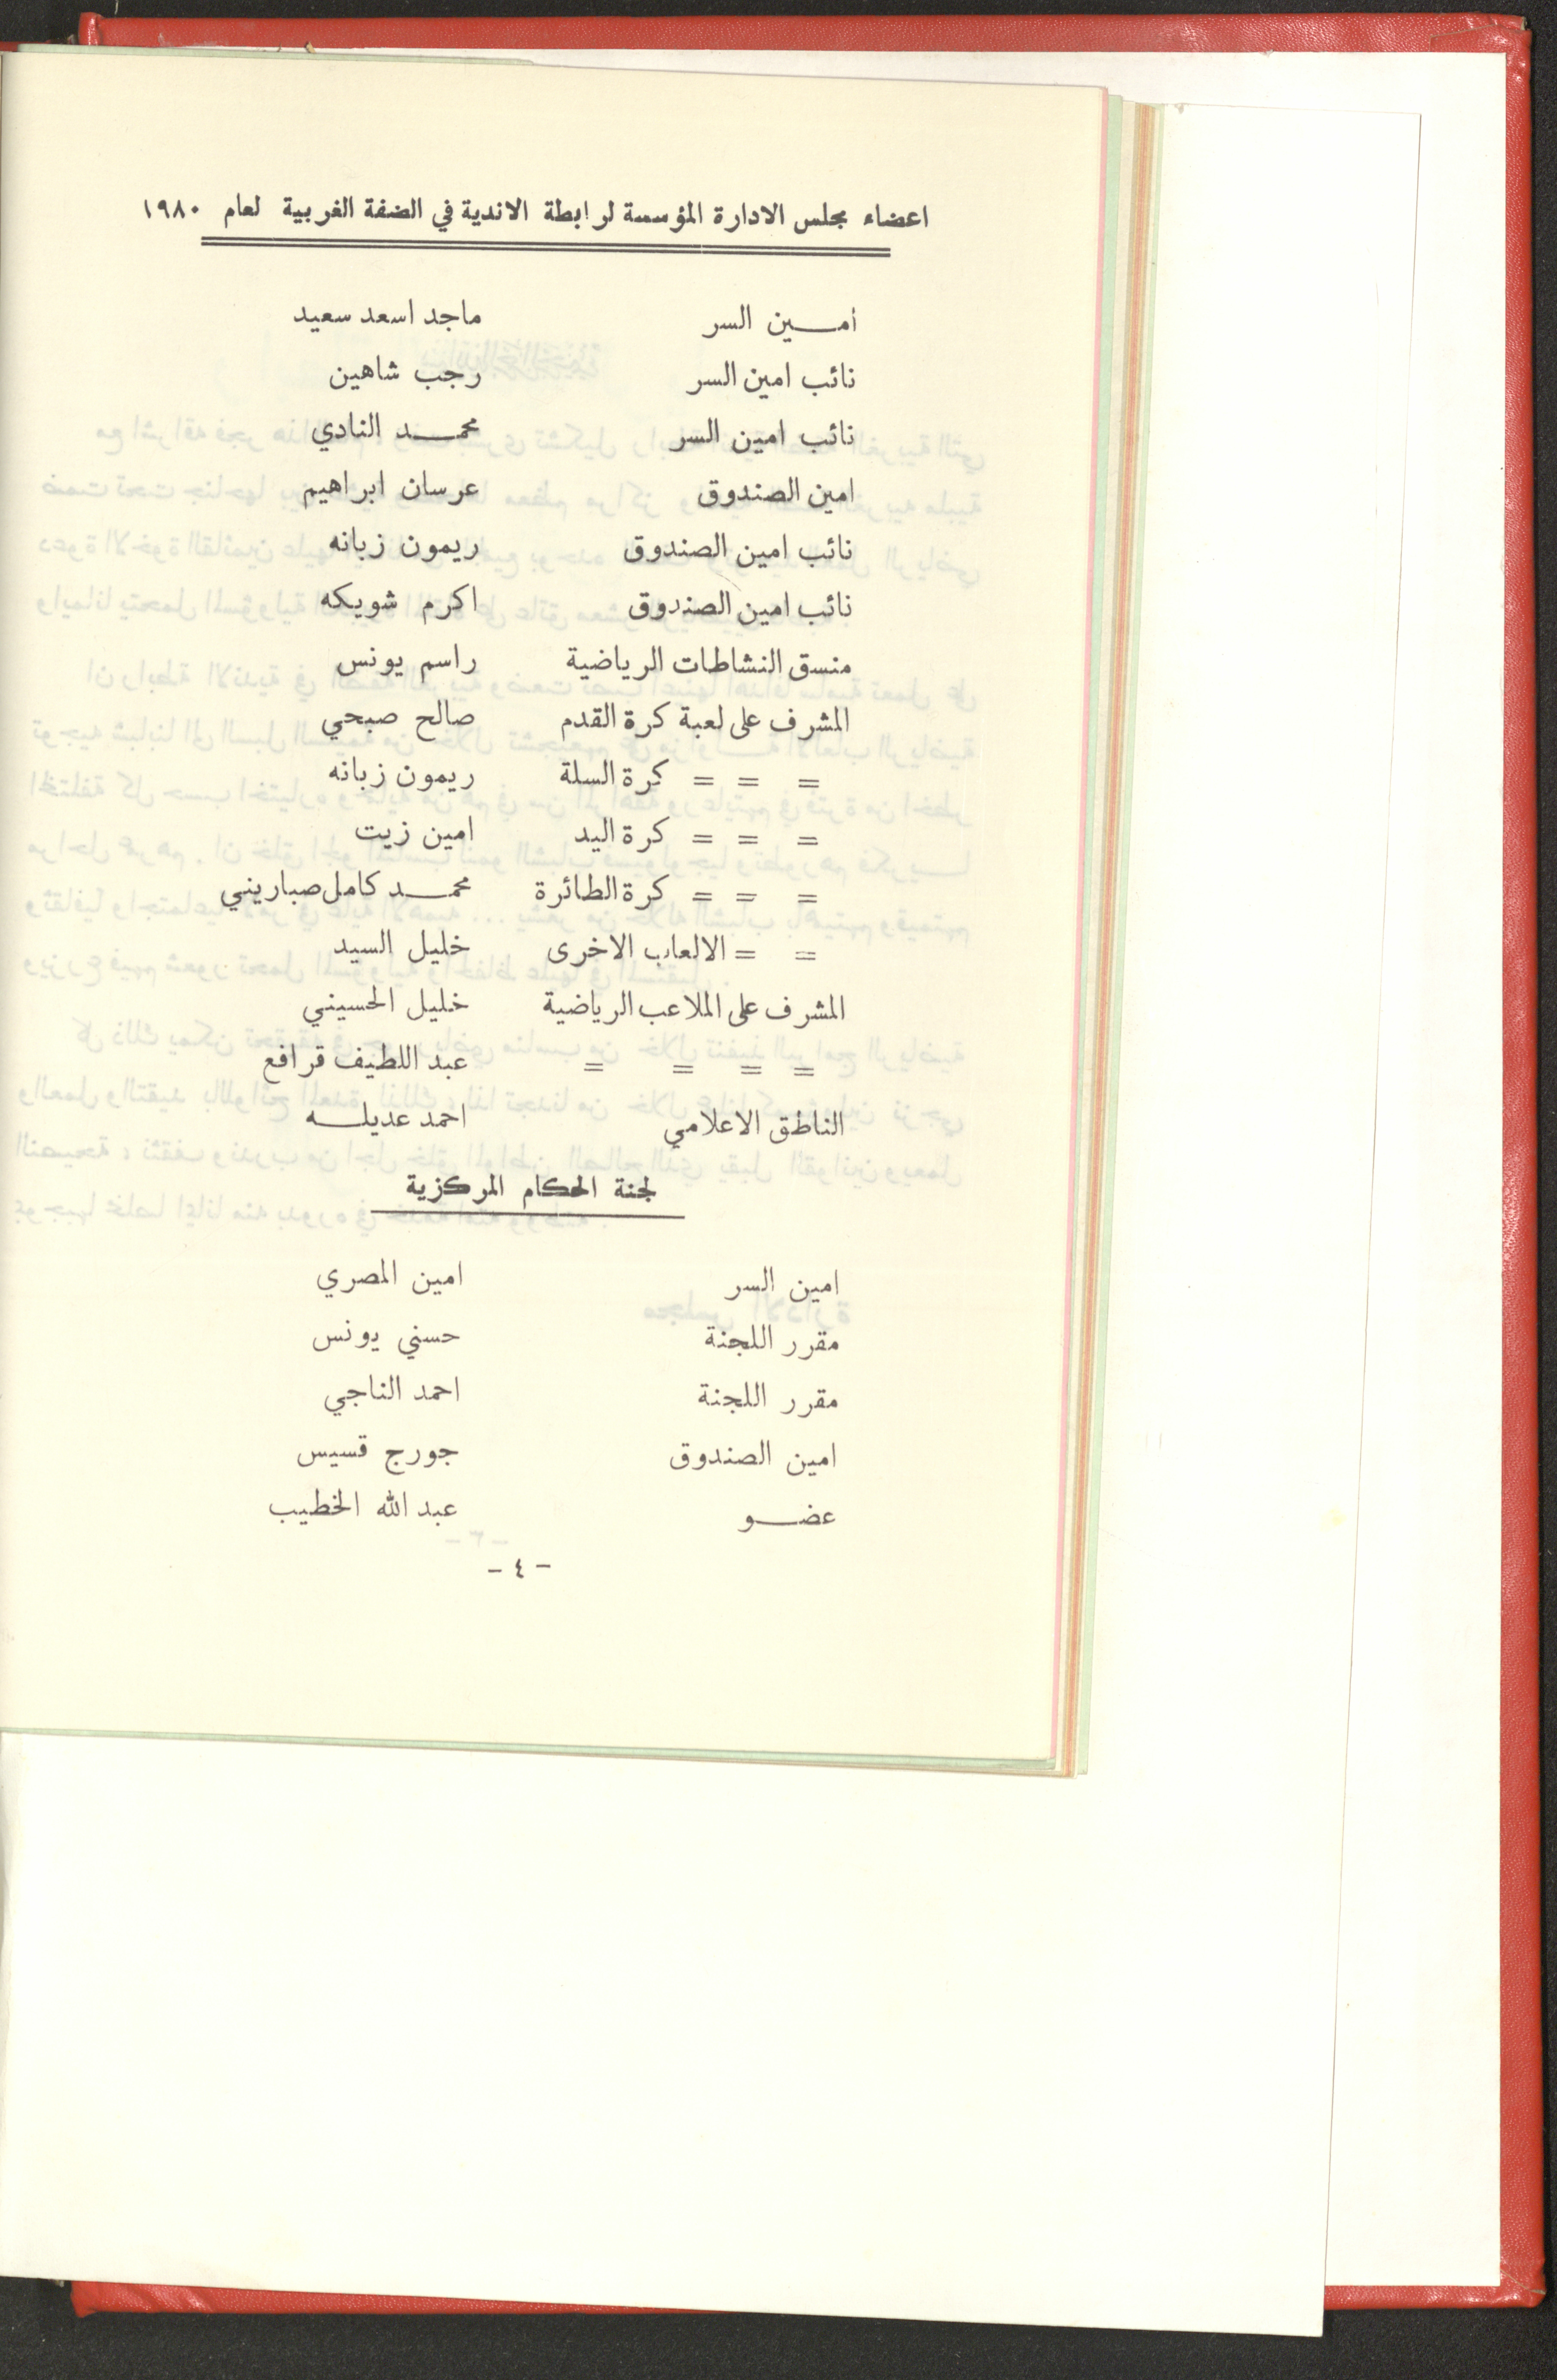 اعضاء مجلس الادارة المؤسسة لرابطة الاندية في الضفة الغربية لعام ١٩٨٠
امـــين السر ماجد اسعد سعيد
نائب امين السر رجب شاهين
نائب امين السر محمـــد النادي
امين الصندوق عرسان ابراهيم
نائب امين الصندوق ريمون زبانه
نائب امين الصندوق اكرم شويكه
منسق النشاطات الرياضية راسم يونس
المشرف على لعبة كرة القدم صالح صبحي
= = = كرة السلة ريمون زبانه
= = = كرة اليد امين زيت
= = = كرة الطائرة محمـــد كامل صباريني
= = الالعاب الاخرى خليل السيد
المشرف على الملاعب الرياضية خليل الحسيني
= = = = عبد اللطيف قرافع
الناطق الاعلامي احمد عديلـــه
لجنة الحكام المركزية
امين السر امين المصري
مقرر اللجنة حسني يونس
مقرر اللجنة احمد الناجي
امين الصندوق جورج قسيس
عضـــو عبد الله الخطيب
- ٤ -